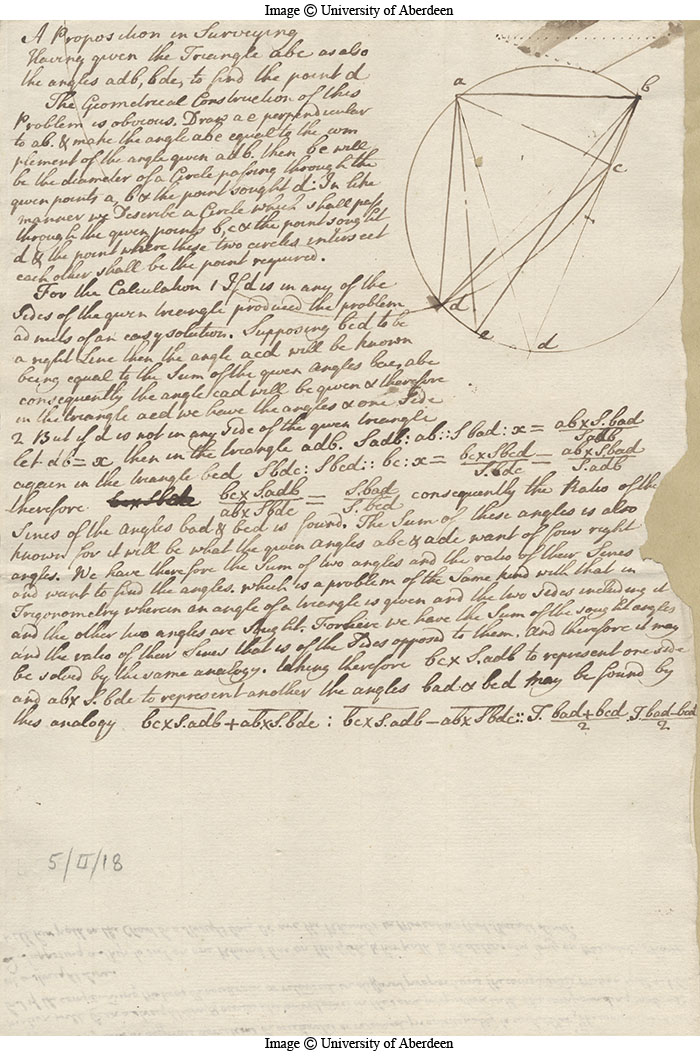 Image © University of Aberdeen
A Proposition in Surveying
Having given the Triangle abc as also
the angles adb, bdc, to find the point d
The Geometrical Construction of this
Problem is obvious. Draw a e perpendicular
to ab. & make the angle abe equal to the com
plement of the angle given adb. then be will
be the diameter of a Circle passing through the
given points a, b & the point sought d. In like
manner we Describe a Circle which shall pass
through the given points b, c & the point sought
d & the point where these two circles intersect
each other shall be the point required.
For the Calculation 1 If d is in any of the
Sides of the given triangle produced the problem
admits of an easy solution. Supposing bcd to be
a right line then the angle acd will be known
being equal to the Sum of the given angles bac, abc
consequently the angle cad will be given & therefore
in the triangle acd we have the angles & one Side
2 But if d is not in any side of the given triangle
let db = x then in the triangle adb. S.adb : ab :: S.bad : x = ab x S.bad / S.adb
again in the triangle bcd S.bdc : S.bcd :: bc : x = bc x S.bcd / S.bdc = ab x S.bad / S.adb
therefore bc x S.adb / ab x S.bdc = S.bad / S.bcd consequently the Ratio of the
Sines of the angles bad & bcd is found. The Sum of these angles is also
known for it will be what the given angles abc & adc want of four right
angles. We have therefore the Sum of two angles and the ratio of their Sines
and want to find the angles. which is a problem of the Same kind with that in
Trigonometry wherein an angle of a triangle is given and the two sides including it
and the other two angles are Sought. For here we have the Sum of the sought angles
and the ratio of their Sines that is of the Sides opposed to them. And therefore it may
be solved by the same analogy. taking therefore bc x S.adb to represent one side
and ab x S.bdc to represent another the angles bad & bcd may be found by
this analogy bc x S.adb + ab x S.bdc : bc x S.adb - ab x S.bdc :: T. bad + bcd / 2 . T. bad - bcd / 2
a
b
c
d
e
d
5/II/18
Image © University of Aberdeen